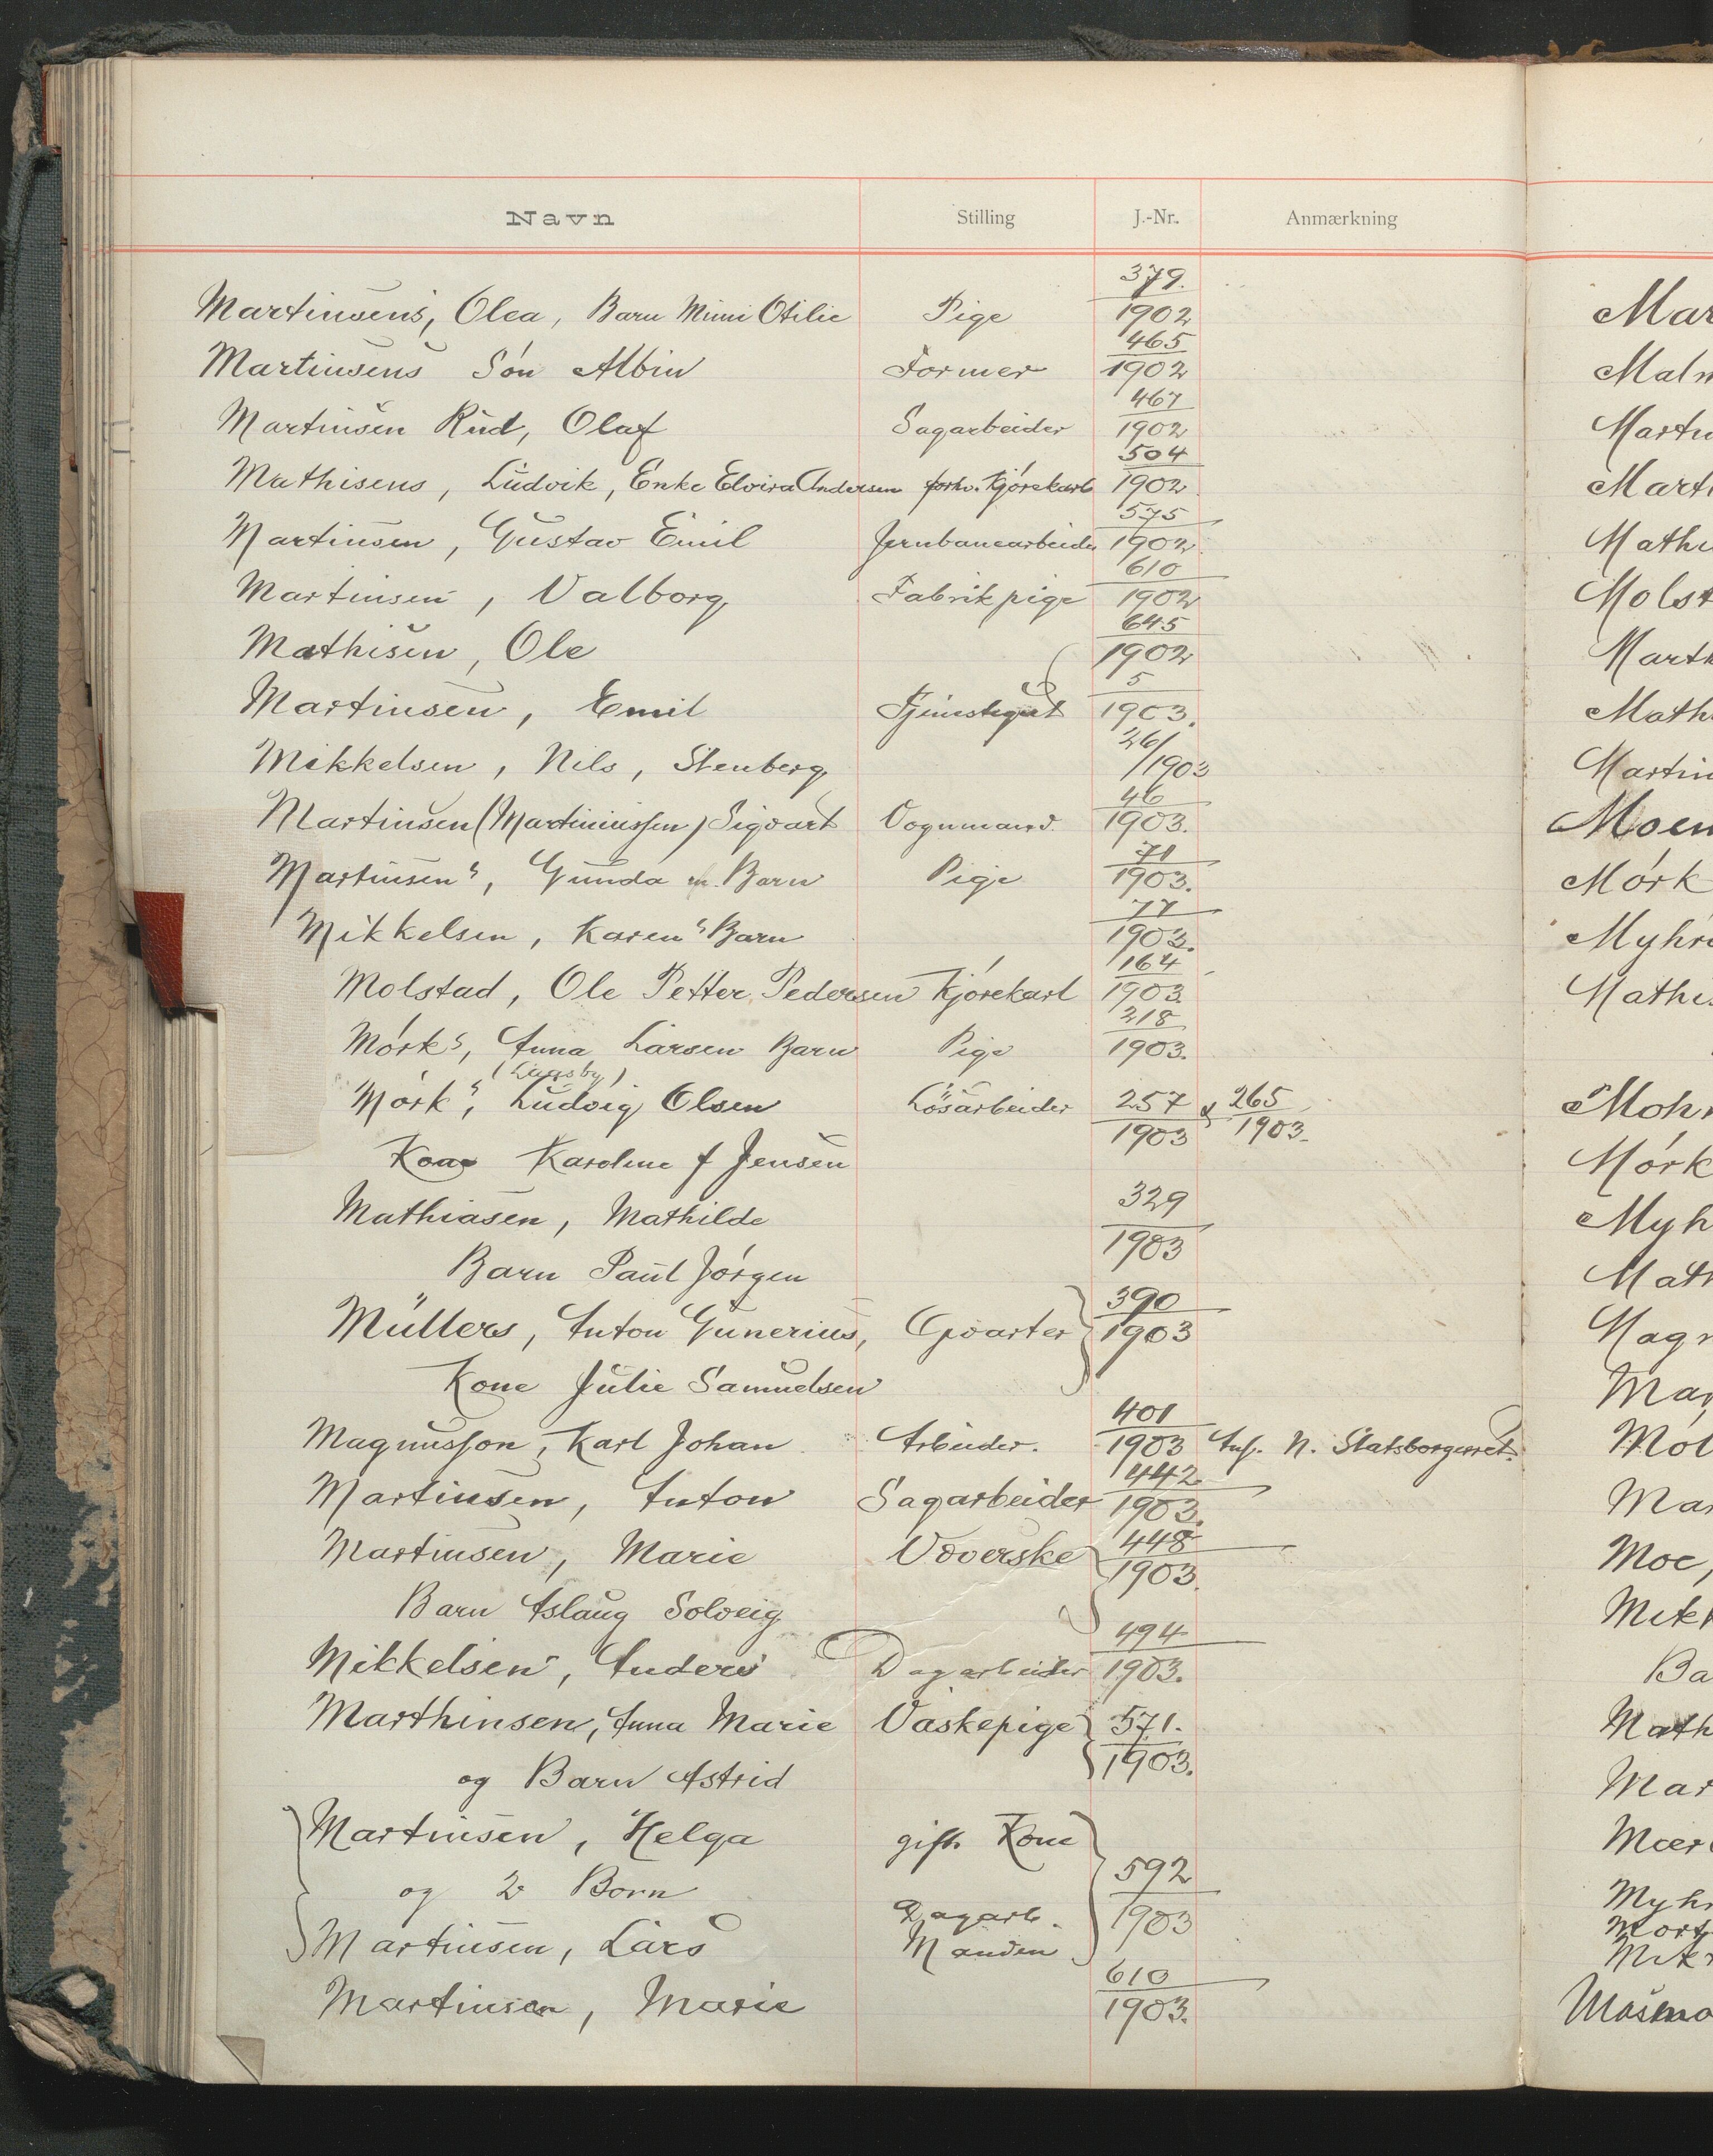 Navn Stilling J.-Nr. Anmærkning
Martinsens, Olea, Barn Mimi Otilie Pige 379. 1902
Martinsens Sön Albin Former 465 1902
Martinsen Rud, Olaf Sagarbeider 467 1902
Mathisens, Ludvik, Enke Elvira Andersen forhv. Kjörekarls 504 1902
Martinsen, Gustav Emil Jernbanearbeider 575 1902
Martinsen, Valborg Fabrikpige 610 1902
Mathisen, Ole 645 1902
Martinsen, Emil Tjenstegut 5 1903.
Mikkelsen, Nils, Stenberg 26/1903
Martinsen (Martiniussen) Sigvart Vognmand 46 1903.
Martinsen's, Gunda m. Barn Pige 71 1903.
Mikkelsen, Karen's Barn 77 1903.
Molstad, Ole Petter Pedersen Kjörekarl 164 1903
Mörks, Anna Larsen Barn Pige 218 1903.
Mörk's, Ludvig Olsen Lösarbeider 257 1903 & 265 1903.
Kone Karoline f Jensen
Mathiasen, Mathilde 329 1903
Barn Paul Jörgen
Müllers, Anton Gunerius, Gvarter 390 1903
Kone Julie Samuelsen
Magnusson, Karl Johan Arbeider. 401 1903 Ans. N. Statsborgerret.
Martinsen, Anton Sagarbeider 442 1903.
Martinsen, Marie Væverske 448 1903.
Barn Aslaug Solveig
Mikkelsen, Anders Dagarbeider 494 1903.
Marthinsen, Anna Marie Vaskepige 571. 1903.
og Barn Astrid
Martinsen, Helga gift. Kone 592 1903
og 2 Born
Martinsen, Lars Dagarb. Manden
Martinsen, Marie 610 1903.
Mar
Maln
Mart
Mart
Math
Molst
Marth
Math
Martin
Moen
Mörk
Myhr
Mathis
Moh
Mörk
Myh
Math
Mag
Mar
Mol
Mar
Moe,
Mikk
Ba
Math
Mar
Myh
Mort
Mik